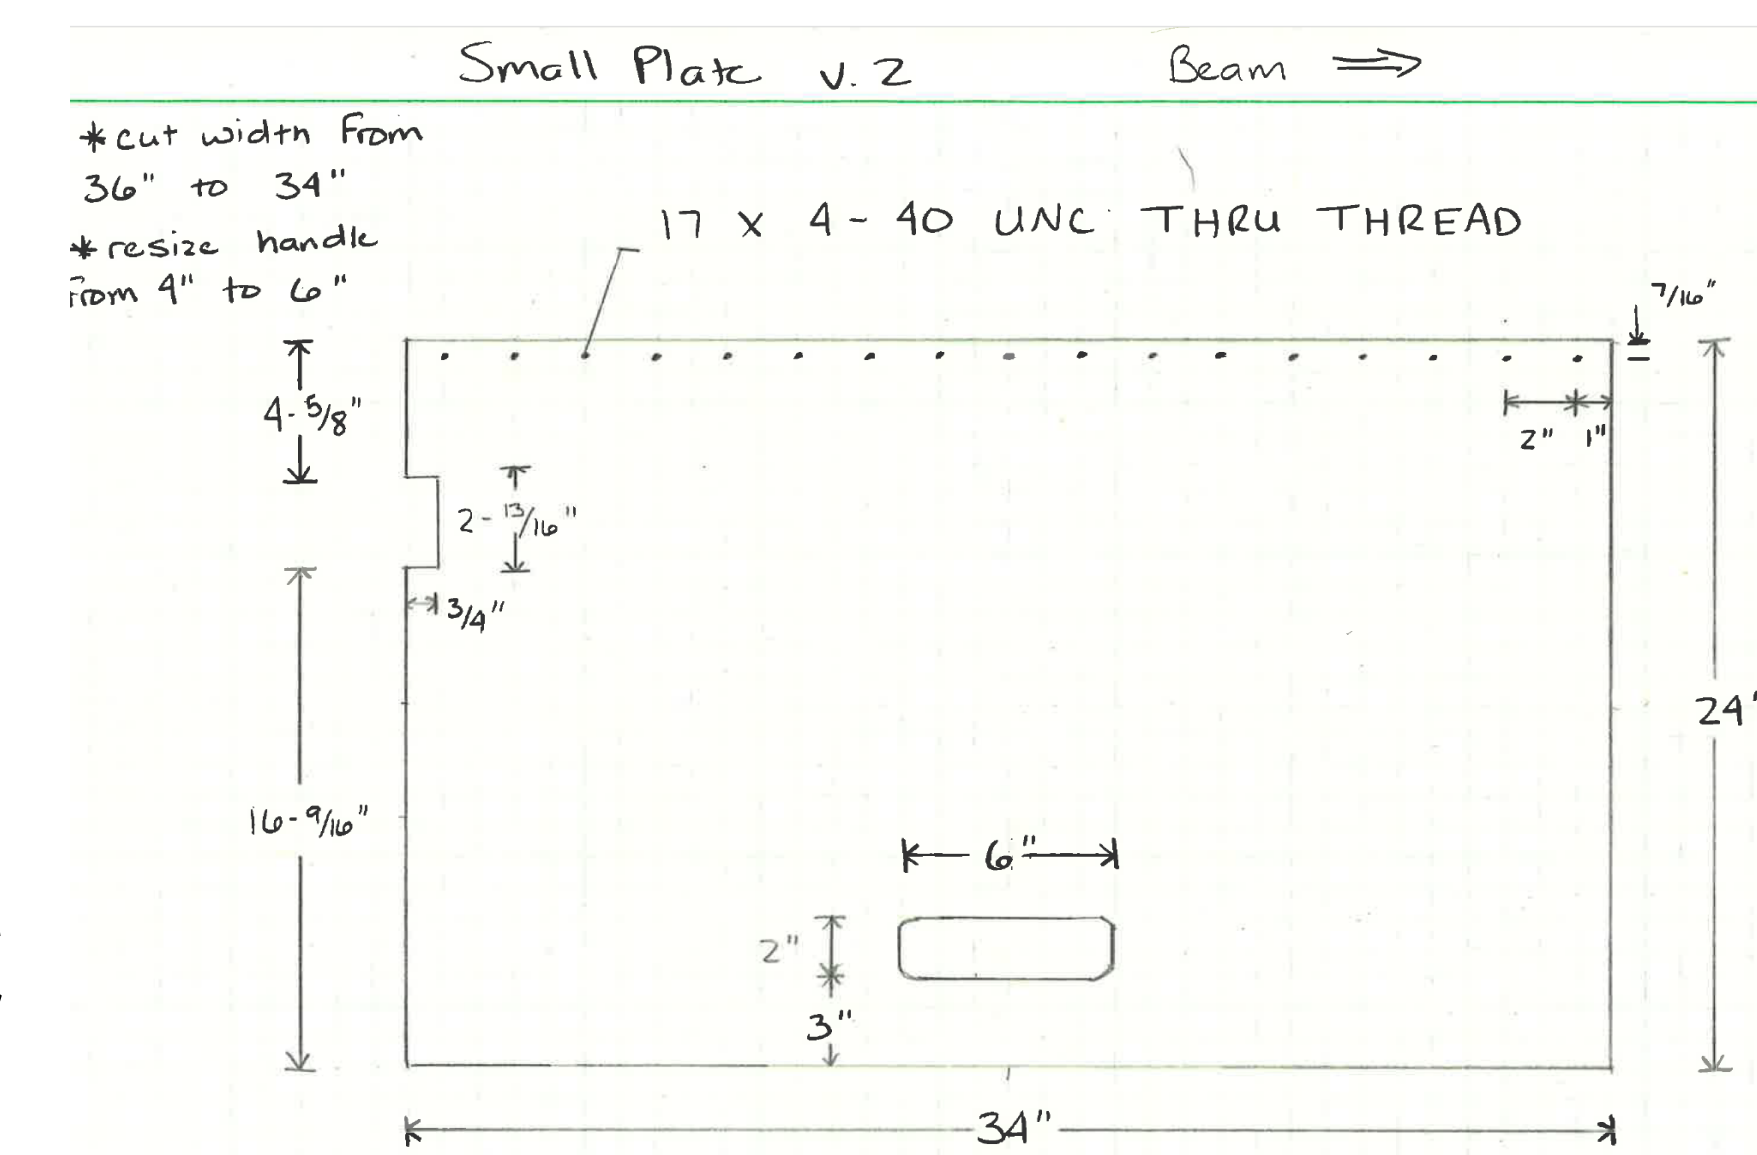 Small Plate v. 2 Beam ⇒
*cut width From
36" to 34"
*resize handle
From 4" to 6"
17 x 4-40 UNC THRU THREAD
7/16"
4-5/8"
2" 1"
2-13/16"
3/4"
24"
16-9/16"
6"
2"
3"
34"